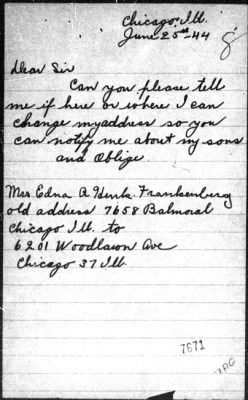 Chicago, Ill.
June 25th-44
Dear Sir
Can you please tell
me if here or where I can
change my address so you
can notify me about my sons
and Oblige
Mrs Edna A Henk. Frankenberg
old address 7658 Balmoral
Chicago Ill. to
6201 Woodlawn Ave
Chicago 37 Ill.
7671